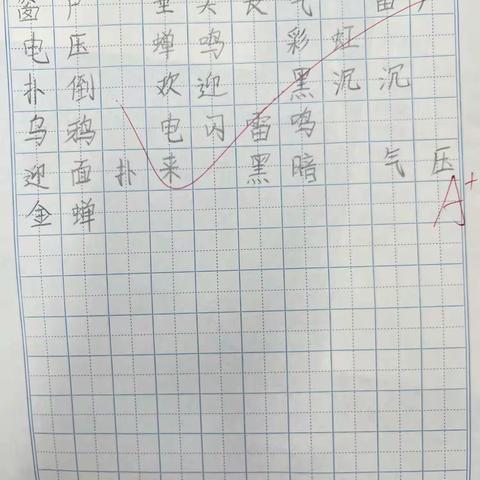 窗户 垂头丧气 雷
电压 蝉鸣 彩虹
扑倒 欢迎 黑沉沉
乌鸦 电闪雷鸣
迎面扑来 黑暗 气压
金蝉
A+